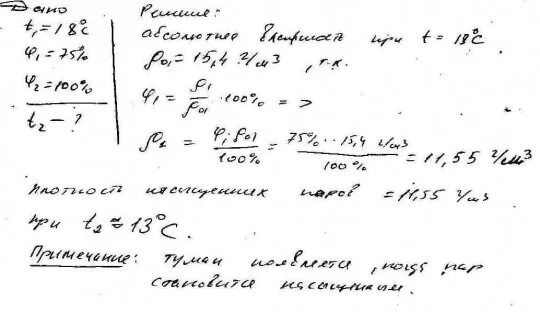 Дано
t₁ = 18°C
φ₁ = 75%
φ₂ = 100%
t₂ - ?
Решение:
абсолютная влажность при t = 18°C
ρ₀₁ = 15,4 г/м³, т.к.
φ₁ = ρ₁/ρ₀₁ · 100% =>
ρ₁ = φ₁·ρ₀₁/100% = 75% · 15,4 г/м³/100% = 11,55 г/м³
плотность насыщенных паров = 11,55 г/м³
при t₂ ≈ 13°C.
Примечание: туман появляется, когда пар
становится насыщенным.